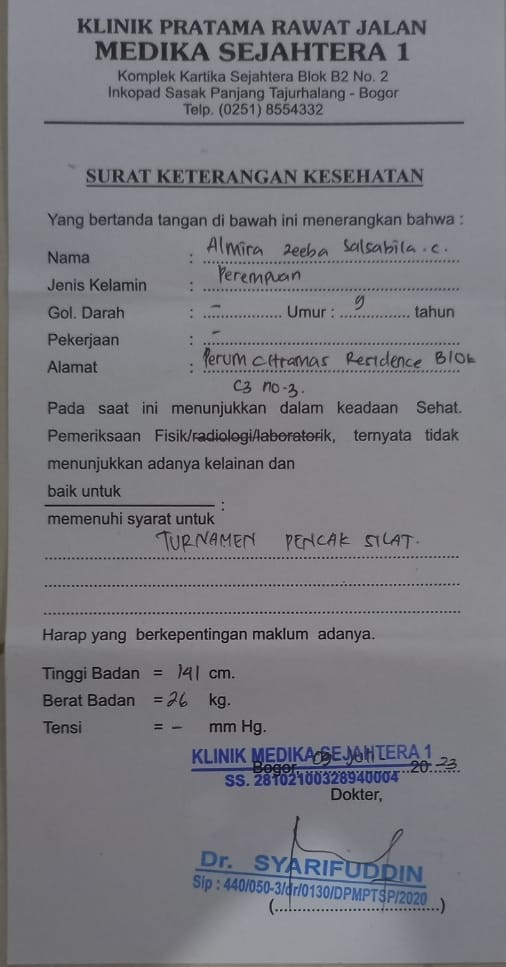 KLINIK PRATAMA RAWAT JALAN
MEDIKA SEJAHTERA 1
Komplek Kartika Sejahtera Blok B2 No. 2
Inkopad Sasak Panjang Tajurhalang - Bogor
Telp. (0251) 8554332
SURAT KETERANGAN KESEHATAN
Yang bertanda tangan di bawah ini menerangkan bahwa :
Nama : Almira zeeba Salsabila . C.
Jenis Kelamin : Perempuan
Gol. Darah : - Umur : 9 tahun
Pekerjaan : -
Alamat : Perum Citramas Residence Blok
C3 no.3.
Pada saat ini menunjukkan dalam keadaan Sehat.
Pemeriksaan Fisik/radiologi/laboratorik, ternyata tidak
menunjukkan adanya kelainan dan
baik untuk
:
memenuhi syarat untuk
TURNAMEN PENCAK SILAT.
Harap yang berkepentingan maklum adanya.
Tinggi Badan = 141 cm.
Berat Badan = 26 kg.
Tensi = - mm Hg.
KLINIK MEDIKA SEJAHTERA 1
Bogor, 09 2023
SS. 28102100328940004
Dokter,
Dr. SYARIFUDDIN
Sip : 440/050-3/dr/0130/DPMPTSP/2020
(....................)